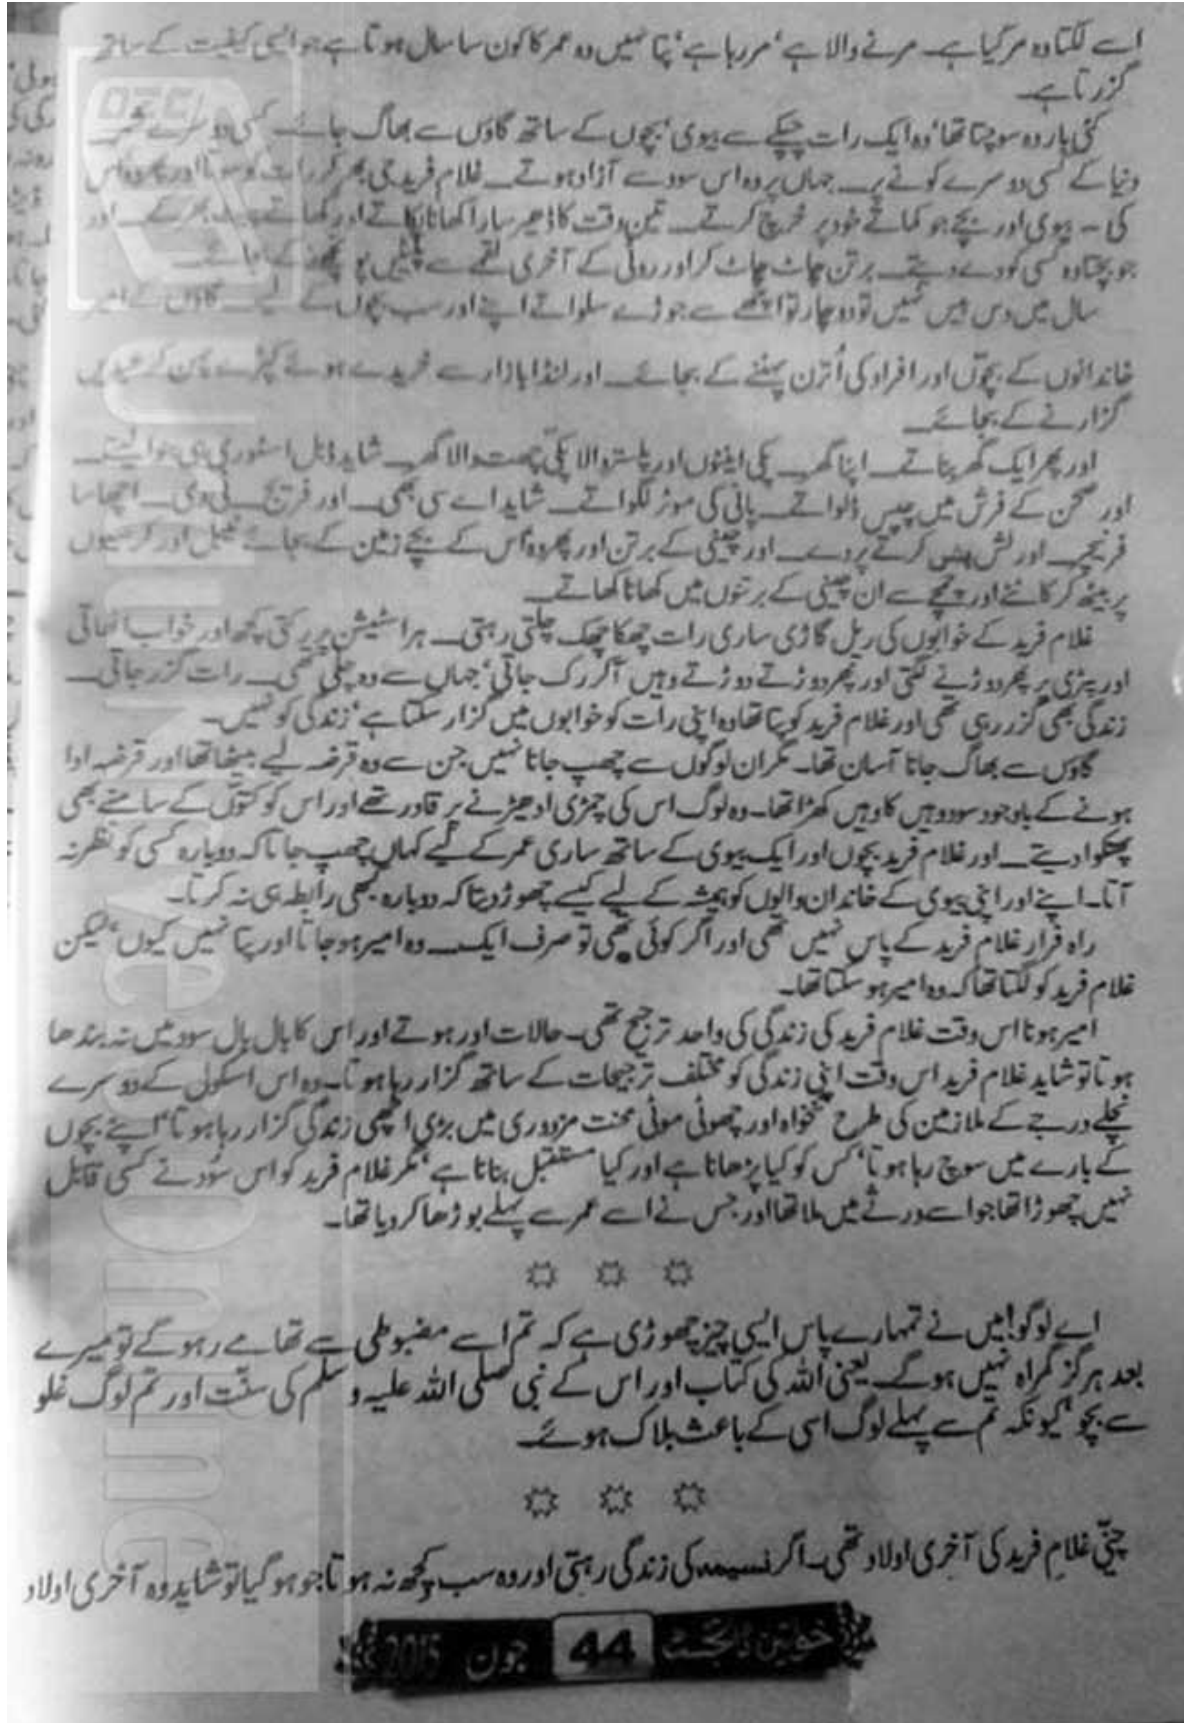 اسے لگتا وہ مر گیا ہے۔ مرنے والا ہے، مر رہا ہے، پتا نہیں وہ عمر کا کون سا سال ہوتا ہے جو ایسی کیفیت کے ساتھ
گزرتا ہے۔
کئی بار وہ سوچتا تھا، وہ ایک رات چپکے سے بیوی، بچوں کے ساتھ گاؤں سے بھاگ جائے۔ کسی دوسرے شہر۔
دنیا کے کسی دوسرے کونے پر۔ جہاں پر وہ اس سود سے آزاد ہوتے۔ غلام فرید جی بھر کر رات کو سوتا اور پھر وہ اس
کی ۔ بیوی اور بچے جو کماتے خود پر خرچ کرتے۔ تین وقت کا ڈھیر سارا کھانا پکاتے اور کھاتے پیٹ بھر کے۔ اور
جو بچتا وہ کسی کو دے دیتے۔ برتن چاٹ چاٹ کر اور روٹی کے آخری لقمے سے پلیٹیں پونچھنے کے بجائے۔
سال میں دس بیس نہیں تو دو چار تو اچھے سے جوڑے سلواتے اپنے اور سب بچوں کے لیے۔ گاؤں کے امیر
خاندانوں کے بچوں اور افراد کی اُترن پہننے کے بجائے۔ اور لنڈا بازار سے خریدے ہوئے کپڑے پہن کے عیدیں
گزارنے کے بجائے۔
اور پھر ایک گھر بناتے۔ اپنا گھر۔ پکی اینٹوں اور پلستر والا پکی چھت والا گھر۔ شاید ڈبل اسٹوری ہی بنوا لیتے۔
اور صحن کے فرش میں چپس ڈلواتے۔ پانی کی موٹر لگواتے۔ شاید اے سی بھی۔ اور فریج۔ ٹی وی۔ اچھا سا
فرنیچر۔ اور لش پش کرتے پردے۔ اور چینی کے برتن اور پھر وہ اس کے بچے زمین کے بجائے ٹیبل اور کرسیوں
پر بیٹھ کر کانٹے اور چمچے سے ان چینی کے برتنوں میں کھانا کھاتے۔
غلام فرید کے خوابوں کی ریل گاڑی ساری رات چھکا چھک چلتی رہتی۔ ہر اسٹیشن پر رکتی کچھ اور خواب اٹھاتی
اور پٹڑی پر پھر دوڑنے لگتی اور پھر دوڑتے دوڑتے وہیں آکر رک جاتی، جہاں سے وہ چلی تھی۔ رات گزر جاتی۔
زندگی بھی گزر رہی تھی اور غلام فرید کو پتا تھا وہ اپنی رات کو خوابوں میں گزار سکتا ہے، زندگی کو نہیں۔
گاؤں سے بھاگ جانا آسان تھا۔ مگر ان لوگوں سے چھپ جانا نہیں جن سے وہ قرضہ لیے بیٹھا تھا اور قرضہ ادا
ہونے کے باوجود سود وہیں کا وہیں کھڑا تھا۔ وہ لوگ اس کی چمڑی ادھیڑنے پر قادر تھے اور اس کو کتوں کے سامنے بھی
پھنکوا دیتے۔ اور غلام فرید بچوں اور ایک بیوی کے ساتھ ساری عمر کے لیے کہاں چھپ جاتا کہ دوبارہ کسی کو نظر نہ
آتا۔ اپنے اور اپنی بیوی کے خاندان والوں کو ہمیشہ کے لیے کیسے چھوڑ دیتا کہ دوبارہ کبھی رابطہ ہی نہ کرتا۔
راہ فرار غلام فرید کے پاس نہیں تھی اور اگر کوئی تھی تو صرف ایک۔ وہ امیر ہو جاتا اور پتا نہیں کیوں، لیکن
غلام فرید کو لگتا تھا کہ وہ امیر ہو سکتا تھا۔
امیر ہونا اس وقت غلام فرید کی زندگی کی واحد ترجیح تھی۔ حالات اور ہوتے اور اس کا بال بال سود میں نہ بندھا
ہوتا تو شاید غلام فرید اس وقت اپنی زندگی کو مختلف ترجیحات کے ساتھ گزار رہا ہوتا۔ وہ اس اسکول کے دوسرے
نچلے درجے کے ملازمین کی طرح تنخواہ اور چھوٹی موٹی محنت مزدوری میں بڑی اچھی زندگی گزار رہا ہوتا، اپنے بچوں
کے بارے میں سوچ رہا ہوتا، کس کو کیا پڑھانا ہے اور کیا مستقبل بنانا ہے، مگر غلام فرید کو اس سُود نے کسی قابل
نہیں چھوڑا تھا جو اسے ورثے میں ملا تھا اور جس نے اسے عمر سے پہلے بوڑھا کر دیا تھا۔
اے لوگو! میں نے تمہارے پاس ایسی چیز چھوڑی ہے کہ تم اسے مضبوطی سے تھامے رہو گے تو میرے
بعد ہرگز گمراہ نہیں ہوگے۔ یعنی اللہ کی کتاب اور اس کے نبی صلی اللہ علیہ وسلم کی سنّت اور تم لوگ غلو
سے بچو، کیونکہ تم سے پہلے لوگ اسی کے باعث ہلاک ہوئے۔
چنی غلام فرید کی آخری اولاد تھی۔ اگر نسیمہ کی زندگی رہتی اور وہ سب کچھ نہ ہوتا جو ہو گیا تو شاید وہ آخری اولاد
خواتین ڈائجسٹ 44 جون 2015